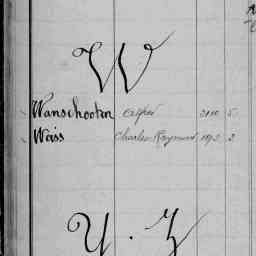 W
Wanschooten Alfred 3110 5
Weiss Charles Raymond 1893 2
Y. Z